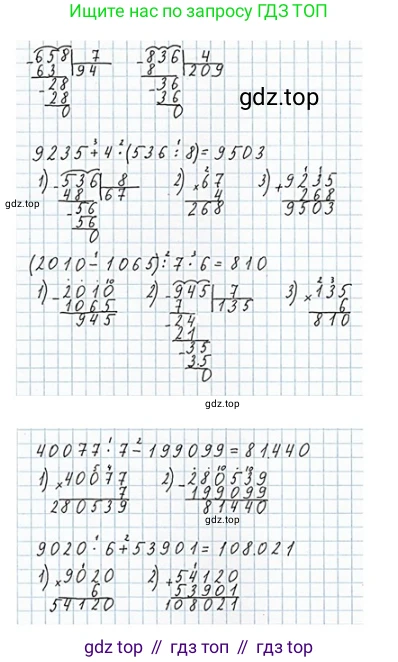 Ищите нас по запросу ГДЗ ТОП
-658 | 7 -836 | 4
63 94 8 209
-28 -36
28 36
0 0
gdz.top
9235 + 4 · (536 : 8) = 9503
1) -536 | 8 2) ×67 3) +9235
48 67 4 268
-56 268 9503
56
0
gdz.top
(2010 - 1065) : 7 · 6 = 810
1) -2010 2) -945 | 7 3) ×135
1065 7 135 6
945 -24 810
21
-35
35
0
gdz.top
40077 · 7 - 199099 = 81.440
1) ×40077 2) -280539
7 199099
280539 81440
gdz.top
9020 · 6 + 53901 = 108.021
1) ×9020 2) +54120
6 53901
54120 108021
gdz.top // гдз.top // гдз.топ